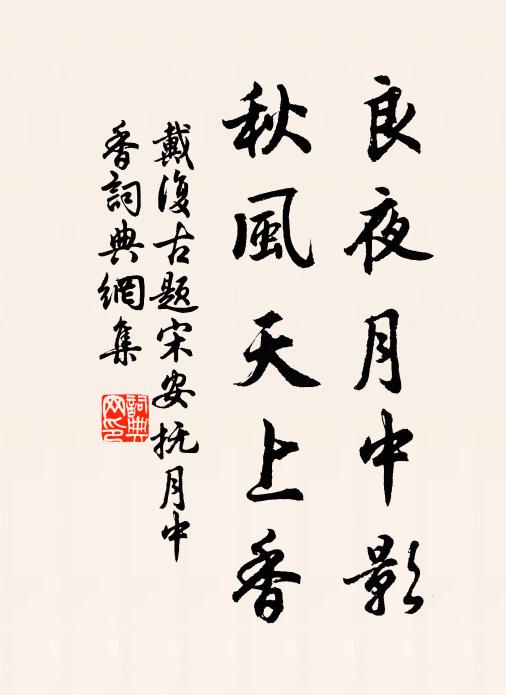 良夜月中影
秋風天上香
戴復古題宋安抚月中
香詞典網集
詞典
网印